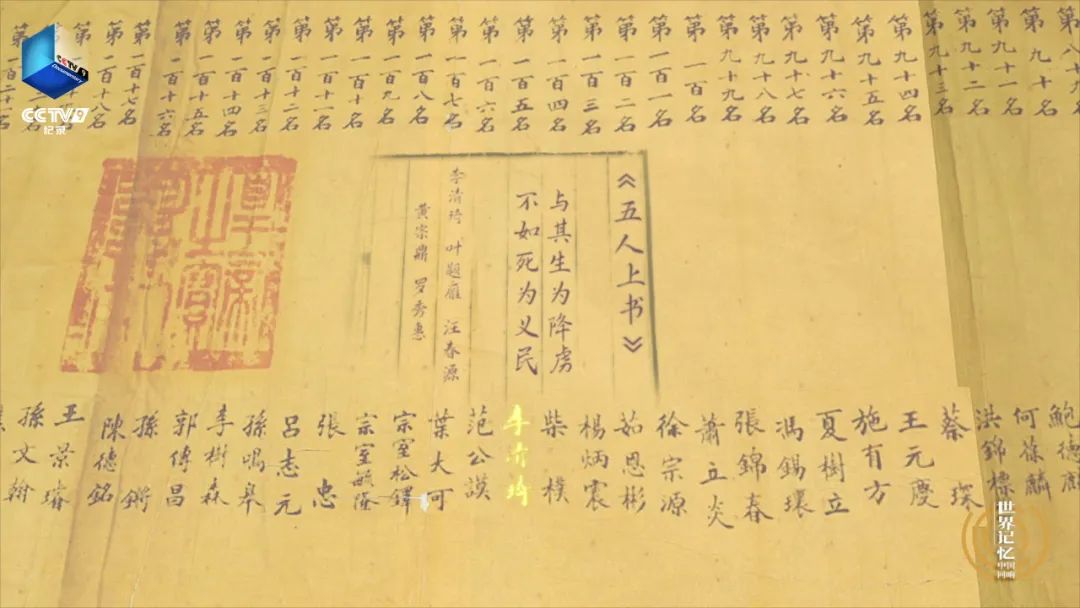 CCTV 9
Documentary
CCTV 9
纪录
第九十名
第九十一名
第九十二名
第九十三名
第九十四名
第九十五名
第九十六名
第九十七名
第九十八名
第九十九名
第一百名
第一百一名
第一百二名
第一百三名
第一百四名
第一百五名
第一百六名
第一百七名
第一百八名
第一百九名
第一百十名
第一百十一名
第一百十二名
第一百十三名
第一百十四名
第一百十五名
第一百十六名
第一百十七名
第一百十八名
《五人上书》
与其生为降虏
不如死为义民
李清琦 叶题雁 汪春源
黄宗鼎 罗秀惠
皇帝之寶
鮑德
何葆麟
洪錦標
蔡琛
王元慶
施有方
夏樹立
馮錫環
張錦春
蕭立炎
徐宗源
茹恩彬
楊炳震
柴樸
李清琦
范公謨
葉大可
宗室松鐸
宗室毓隆
張忠
呂志元
孫鳴皋
李樹森
郭傳昌
孫鏘
陳德銘
王景
孫文翰
世界记忆
中国
回响